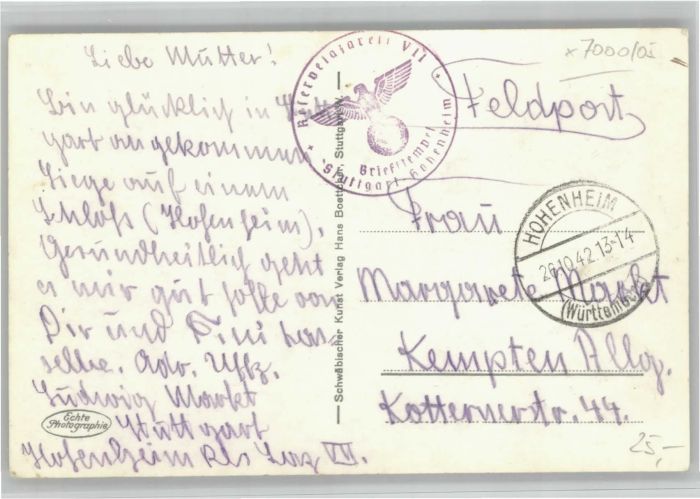 Liebe Mutter!
Bin glücklich in Stutt
gart angekommen
Liege auf einem
Schloß (Hohenheim),
Gesundheitlich geht
es mir gut hoffe von
Dir und
selbe. Adr. Uffz.
Ludwig Markt
Stuttgart
Hohenheim Res Laz VII.
Echte
Photographie
Schwäbischer Kunst Verlag Hans Boettcher, Stuttgart
Reservelazarett VII
Briefstempel
Stuttgart-Hohenheim
x7000/05
Feldpost
HOHENHEIM
26.10.42.13-14
(Württemberg)
Frau
Margarete Markt
Kempten Allg.
Kotternerstr. 44.
25,-